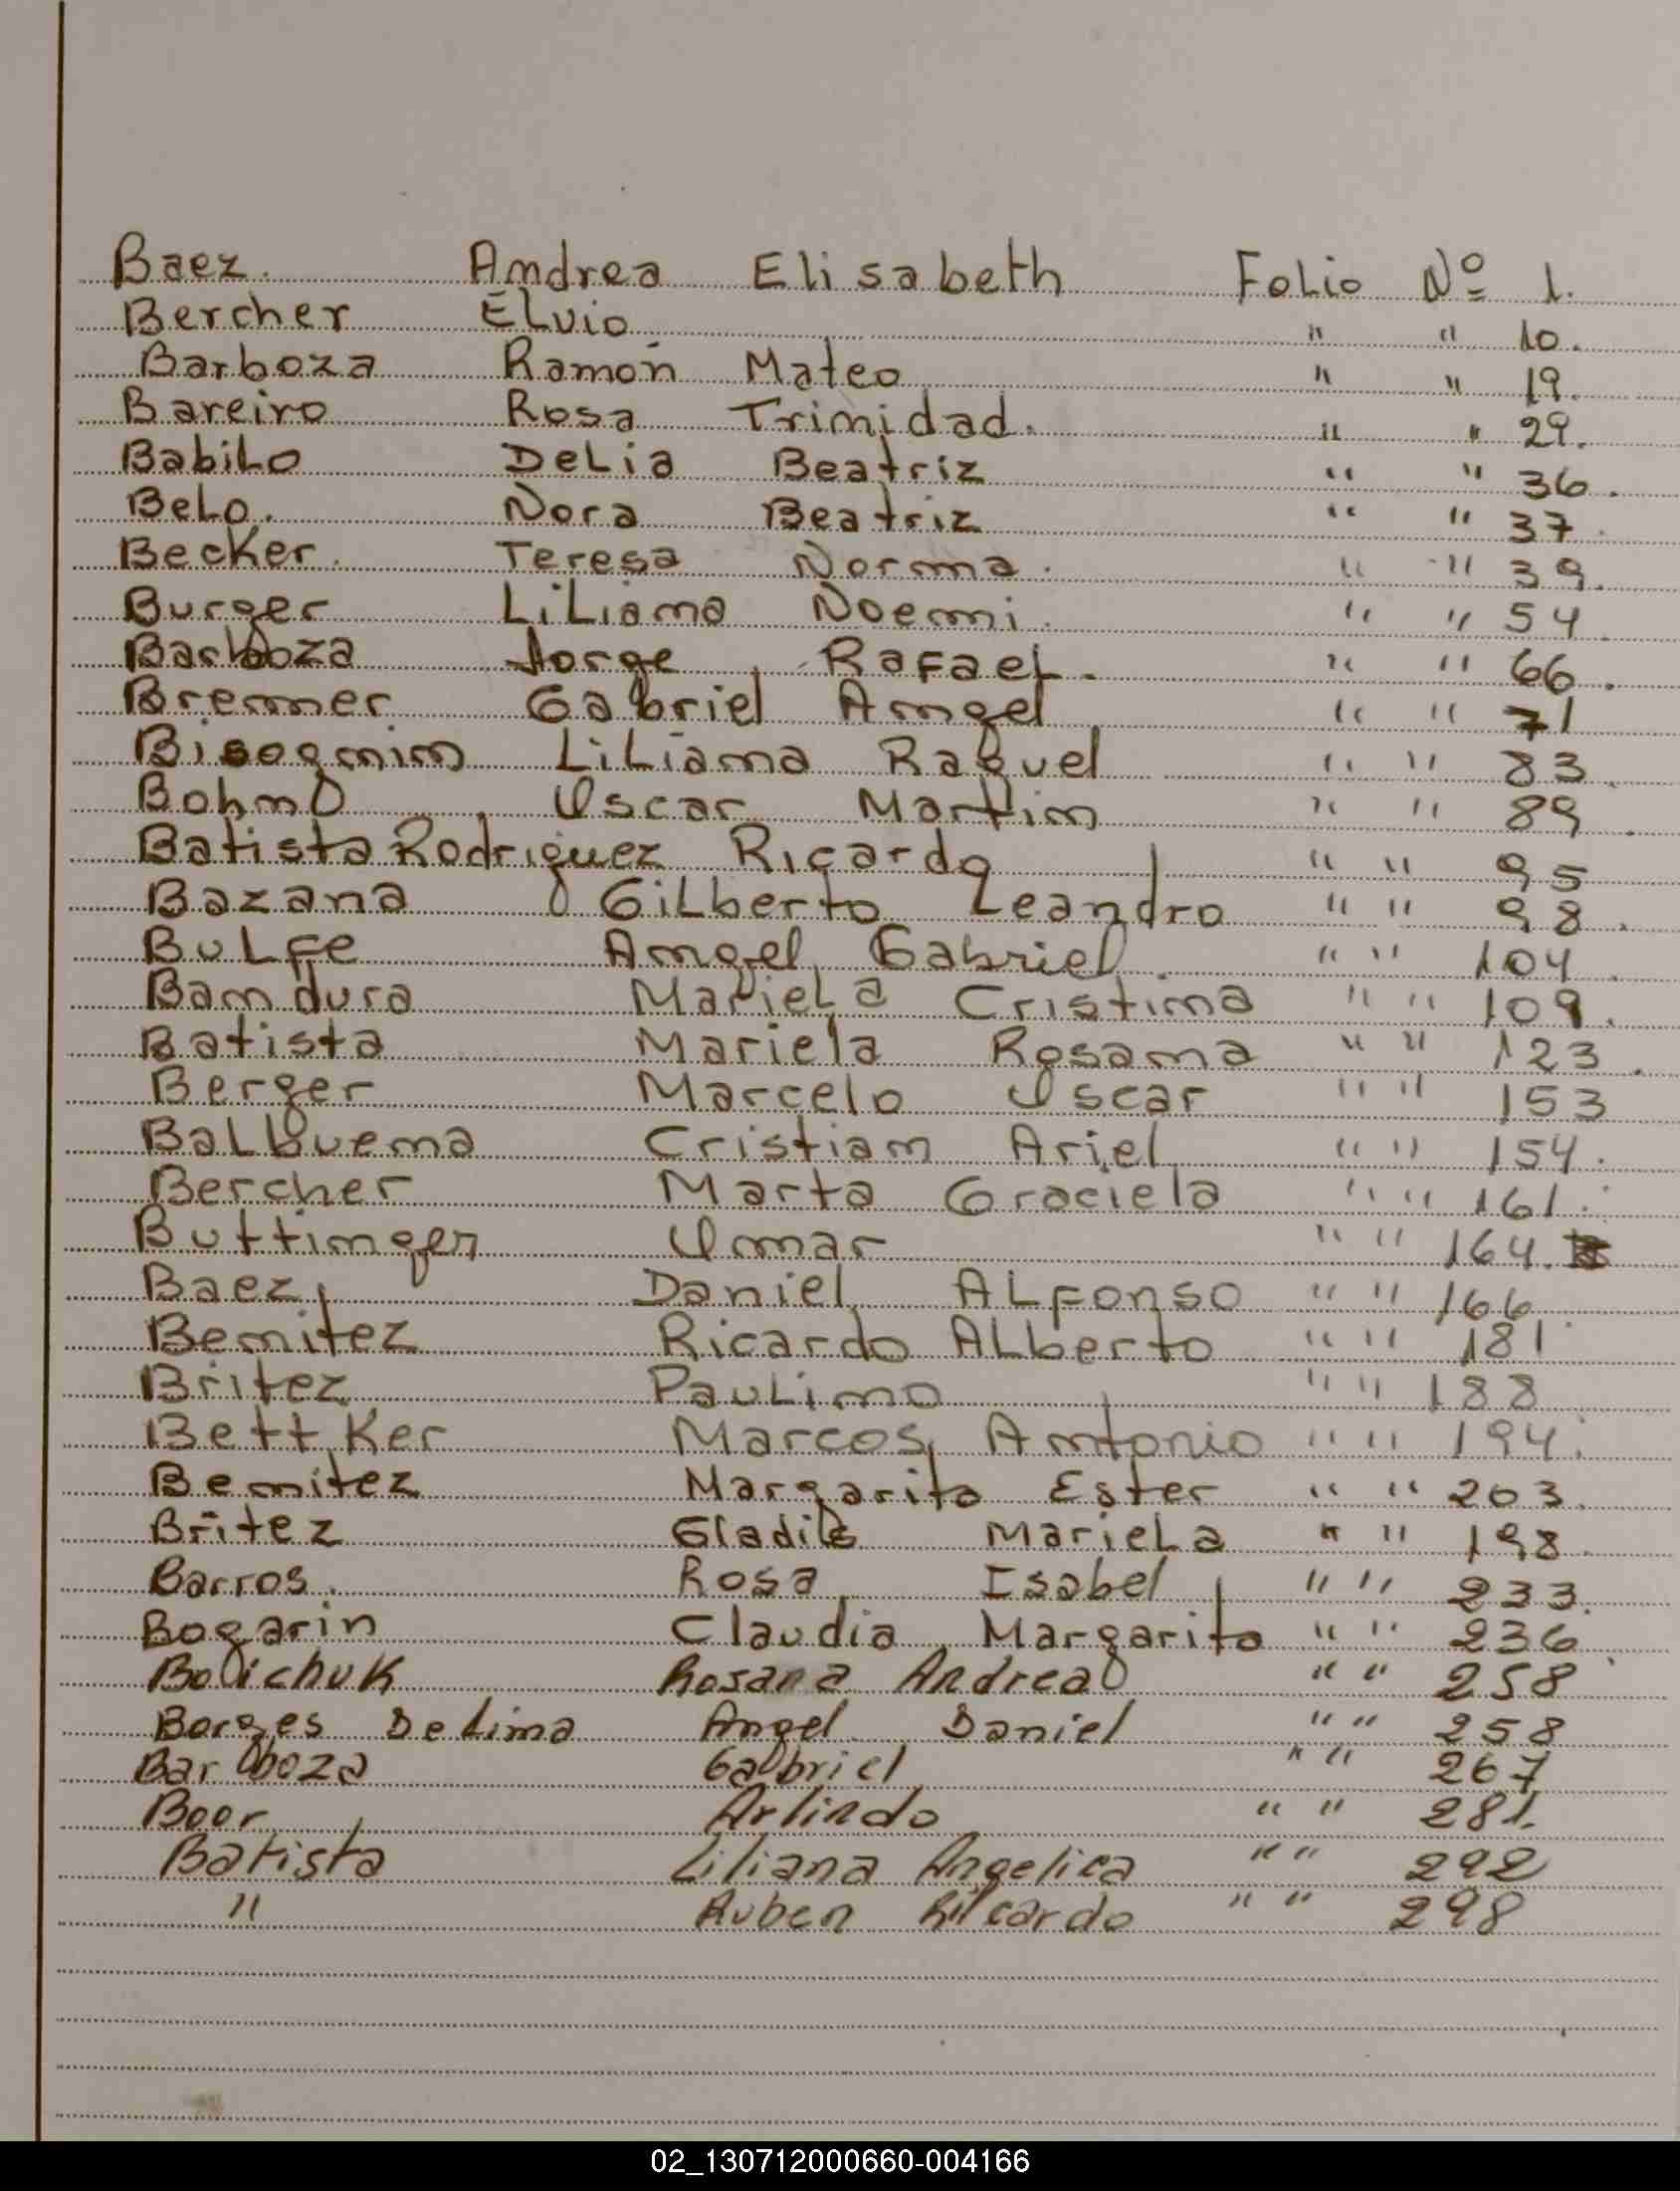 Baez. Andrea Elisabeth Folio Nº 1.
Bercher Elvio " " 10.
Barboza Ramón Mateo " " 19.
Bareiro Rosa Trinidad. " " 29.
Babilo Delia Beatriz " " 36.
Belo. Nora Beatriz " " 37.
Becker. Teresa Norma. " " 39.
Burger Liliana Noemi. " " 54.
Barboza Jorge Rafael. " " 66.
Brenner Gabriel Angel " " 71
Bisognin Liliana Raquel " " 83.
Bohn Oscar Martin " " 89.
Batista Rodriguez Ricardo " " 95
Bazana Gilberto Leandro " " 98.
Bulfe Angel Gabriel. " " 104.
Bandura Mariela Cristina " " 109.
Batista Mariela Rosana " " 123.
Berger Marcelo Oscar " " 153
Balbuena Cristian Ariel " " 154.
Bercher Marta Graciela " " 161.
Buttinger Omar " " 164.
Baez Daniel Alfonso " " 166.
Benitez Ricardo Alberto " " 181
Britez Paulino " " 188
Bettker Marcos Antonio " " 194.
Benitez Margarita Ester " " 203.
Britez Gladis Mariela " " 198.
Barros. Rosa Isabel " " 233.
Bogarin Claudia Margarita " " 236.
Bolichuk Rosana Andrea " " 258
Borges De Lima Angel Daniel " " 258
Barboza Gabriel " " 267
Boor Arlindo " " 281.
Batista Liliana Angelica " " 292
" Ruben Ricardo " " 298
02_130712000660-004166